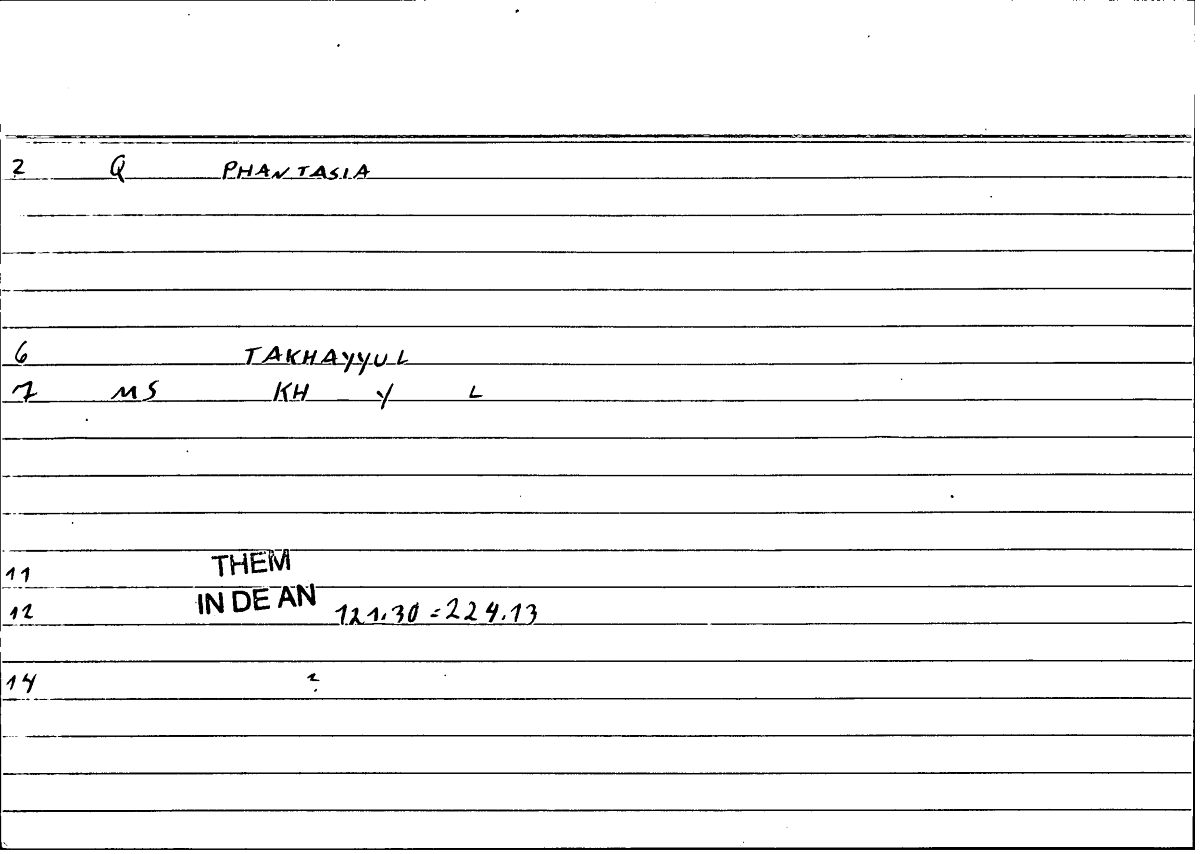 2 Q PHANTASIA
6 TAKHAYYUL
7 MS KH Y L
11 THEM
12 IN DE AN 121.30 = 224.13
14 ?